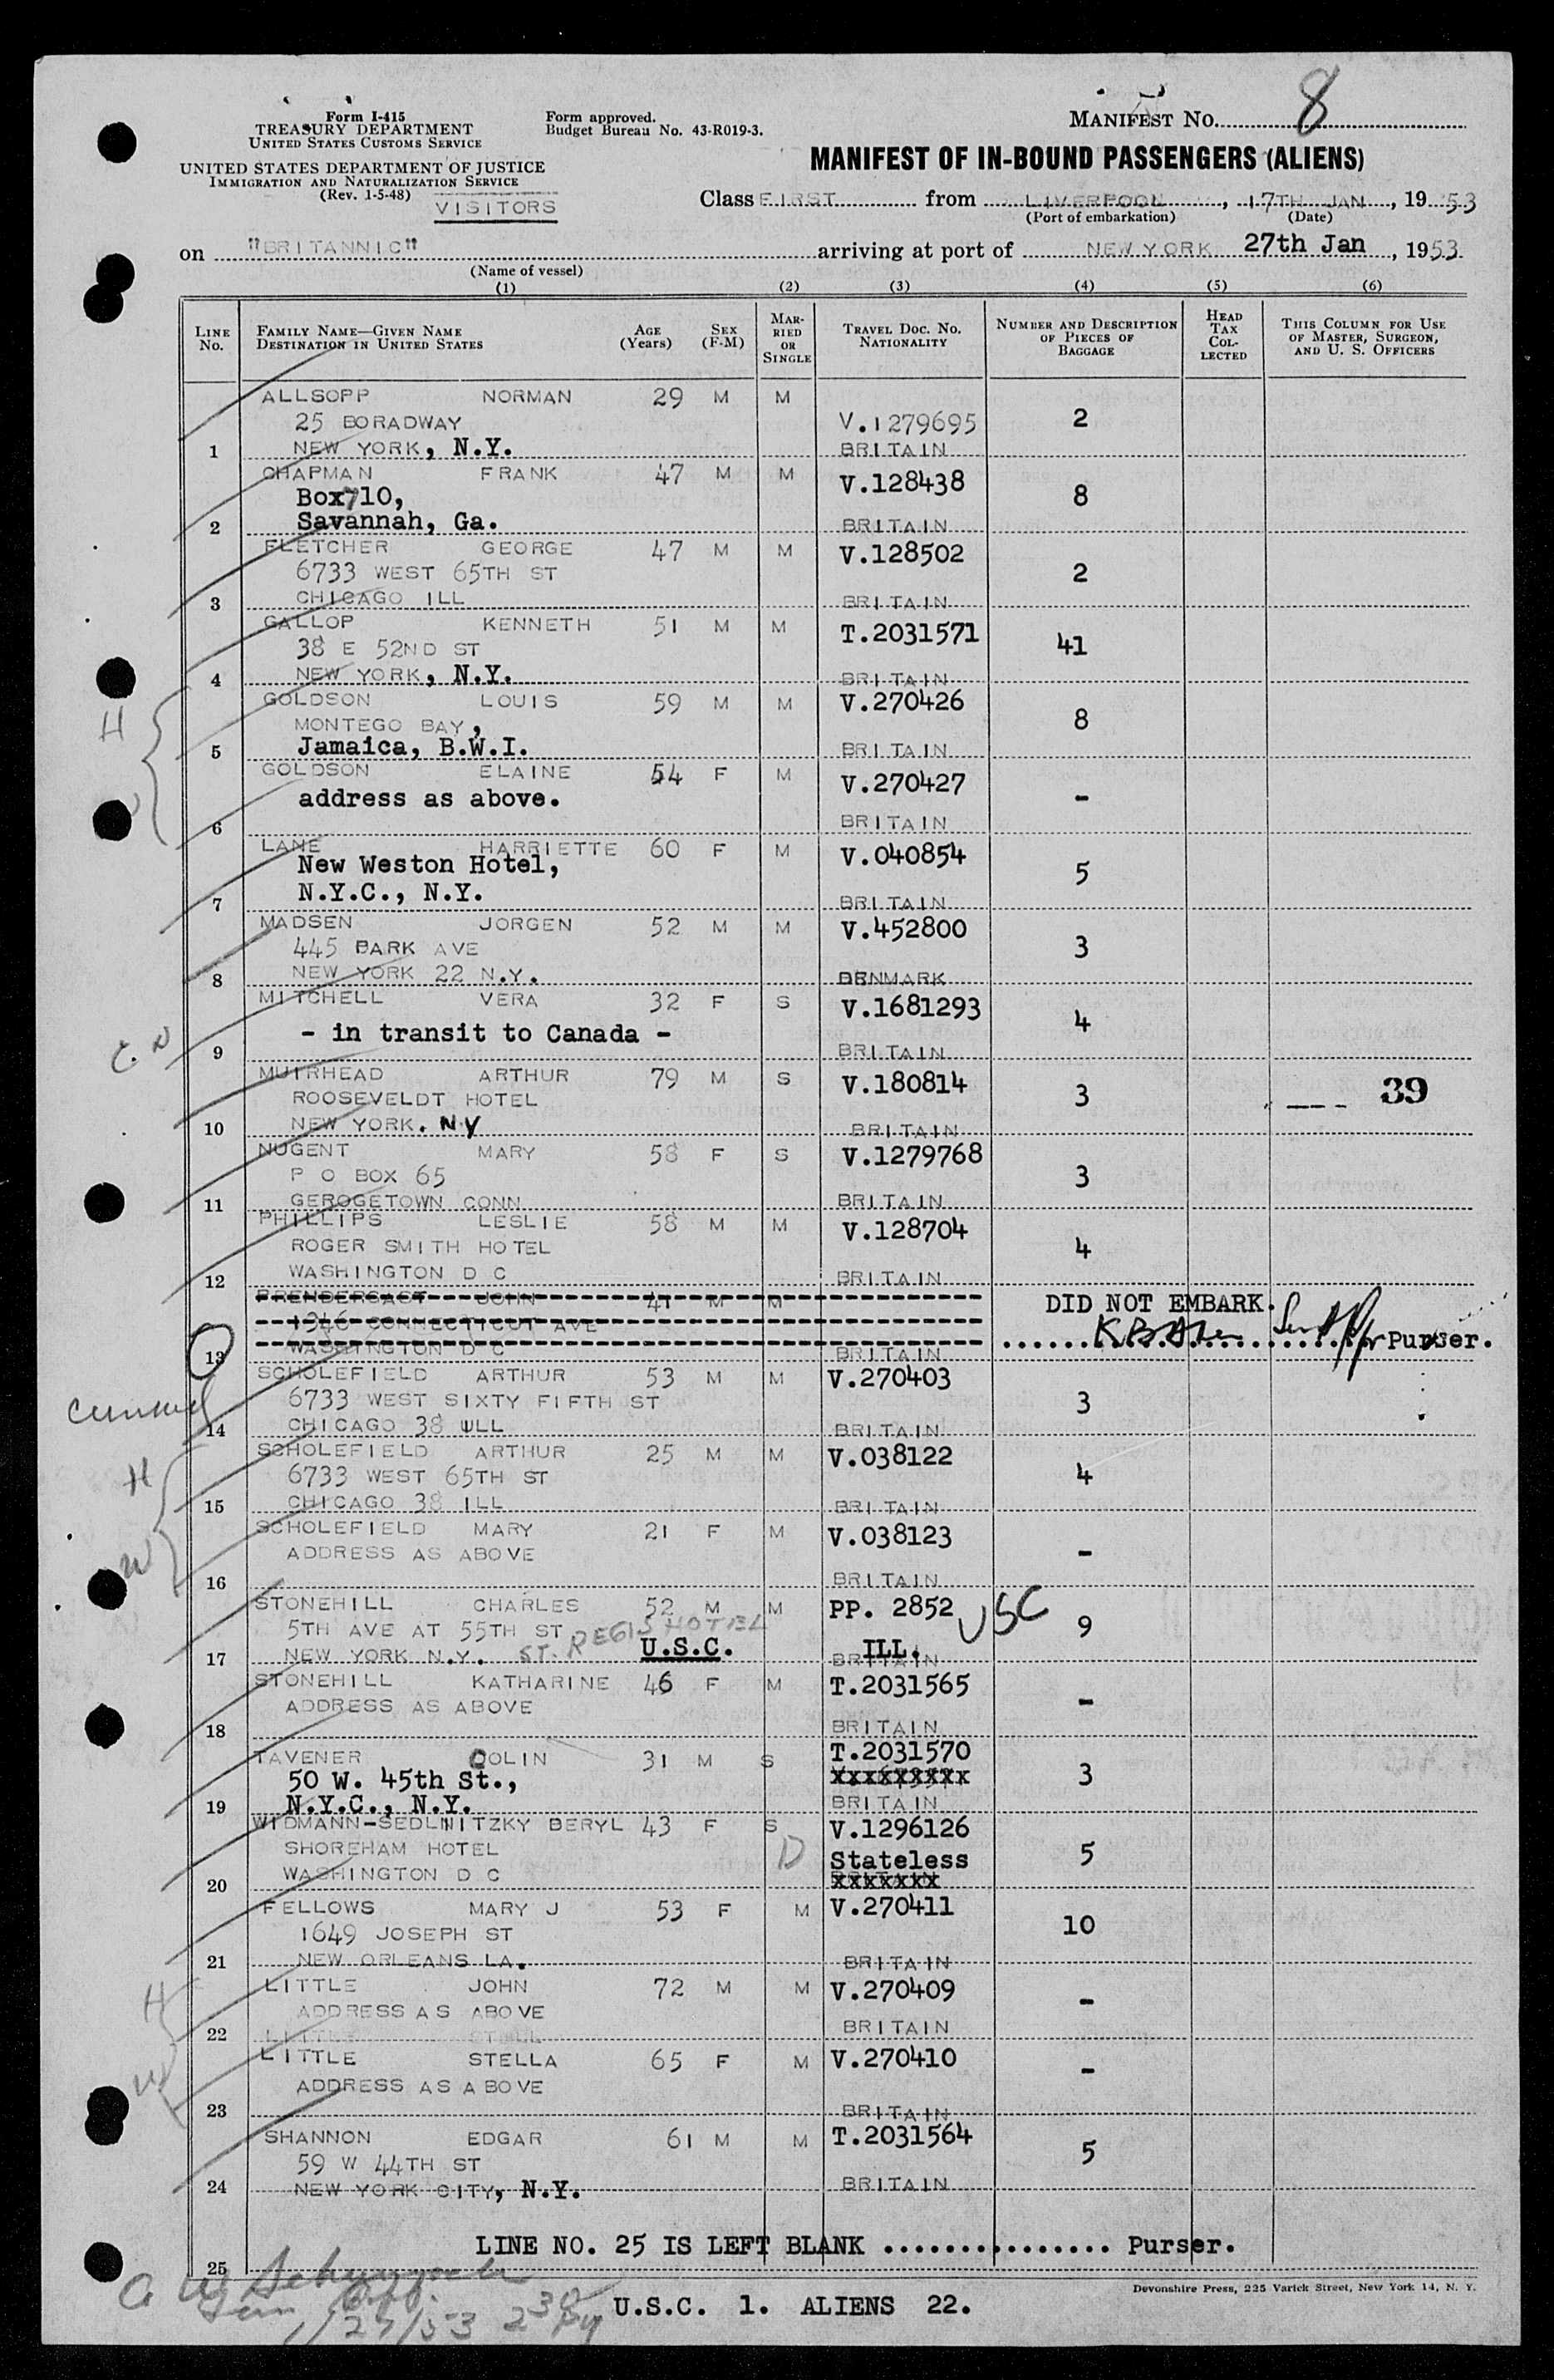 Form I-415
TREASURY DEPARTMENT
UNITED STATES CUSTOMS SERVICE
UNITED STATES DEPARTMENT OF JUSTICE
IMMIGRATION AND NATURALIZATION SERVICE
(Rev. 1-5-48)
VISITORS
Form approved.
Budget Bureau No. 43-R019-3.
MANIFEST NO. 8
MANIFEST OF IN-BOUND PASSENGERS (ALIENS)
Class FIRST from LIVERPOOL, 17TH JAN, 19 53
(Port of embarkation) (Date)
on "BRITANNIC" arriving at port of NEW YORK 27th Jan, 1953
(Name of vessel)
(1) (2) (3) (4) (5) (6)
LINE NO. FAMILY NAME—GIVEN NAME DESTINATION IN UNITED STATES AGE (Years) SEX (F-M) MARRIED OR SINGLE TRAVEL DOC. NO. NATIONALITY NUMBER AND DESCRIPTION OF PIECES OF BAGGAGE HEAD TAX COLLECTED THIS COLUMN FOR USE OF MASTER, SURGEON, AND U. S. OFFICERS
ALLSOPP NORMAN 29 M M
25 BORADWAY V.1279695 2
1 NEW YORK, N.Y. BRITAIN
CHAPMAN FRANK 47 M M V.128438
Box 710, 8
2 Savannah, Ga. BRITAIN
FLETCHER GEORGE 47 M M V.128502
6733 WEST 65TH ST 2
3 CHICAGO ILL BRITAIN
GALLOP KENNETH 51 M M T.2031571
38 E 52ND ST 41
4 NEW YORK, N.Y. BRITAIN
GOLDSON LOUIS 59 M M V.270426
H MONTEGO BAY, 8
5 Jamaica, B.W.I. BRITAIN
GOLDSON ELAINE 54 F M V.270427
address as above. -
6 BRITAIN
LANE HARRIETTE 60 F M V.040854
New Weston Hotel, 5
7 N.Y.C., N.Y. BRITAIN
MADSEN JORGEN 52 M M V.452800
445 PARK AVE 3
8 NEW YORK 22 N.Y. DENMARK
MITCHELL VERA 32 F S V.1681293
- in transit to Canada - 4
9 BRITAIN
MUIRHEAD ARTHUR 79 M S V.180814
ROOSEVELDT HOTEL 3 --- 39
10 NEW YORK. NY BRITAIN
NUGENT MARY 58 F S V.1279768
P O BOX 65 3
11 GEROGETOWN CONN BRITAIN
PHILLIPS LESLIE 58 M M V.128704
ROGER SMITH HOTEL 4
12 WASHINGTON D C BRITAIN
PRENDERGAST JOHN 41 M M DID NOT EMBARK.
1346 CONNECTICUT AVE
13 WASHINGTON D C BRITAIN Purser.
SCHOLEFIELD ARTHUR 53 M M V.270403
6733 WEST SIXTY FIFTH ST 3
14 CHICAGO 38 ILL BRITAIN
SCHOLEFIELD ARTHUR 25 M M V.038122
H 6733 WEST 65TH ST 4
15 CHICAGO 38 ILL BRITAIN
SCHOLEFIELD MARY 21 F M V.038123
W ADDRESS AS ABOVE -
16 BRITAIN
STONEHILL CHARLES 52 M M PP. 2852 USC
5TH AVE AT 55TH ST ST. REGIS HOTEL 9
17 NEW YORK N.Y. U.S.C. ILL. BRITAIN
STONEHILL KATHARINE 46 F M T.2031565
ADDRESS AS ABOVE -
18 BRITAIN
TAVENER COLIN 31 M S T.2031570
50 W. 45th St., xxxxxxxxx 3
19 N.Y.C., N.Y. BRITAIN
WIDMANN-SEDLNITZKY BERYL 43 F S V.1296126
SHOREHAM HOTEL D Stateless 5
20 WASHINGTON D C xxxxxxx
FELLOWS MARY J 53 F M V.270411
1649 JOSEPH ST 10
21 NEW ORLEANS LA. BRITAIN
H LITTLE JOHN 72 M M V.270409
ADDRESS AS ABOVE -
22 BRITAIN
LITTLE STELLA 65 F M V.270410
W ADDRESS AS ABOVE -
23 BRITAIN
SHANNON EDGAR 61 M M T.2031564
59 W 44TH ST 5
24 NEW YORK CITY, N.Y. BRITAIN
LINE NO. 25 IS LEFT BLANK ................ Purser.
25
Devonshire Press, 225 Varick Street, New York 14, N. Y.
U.S.C. 1. ALIENS 22.
1/27/53 2 30 PM